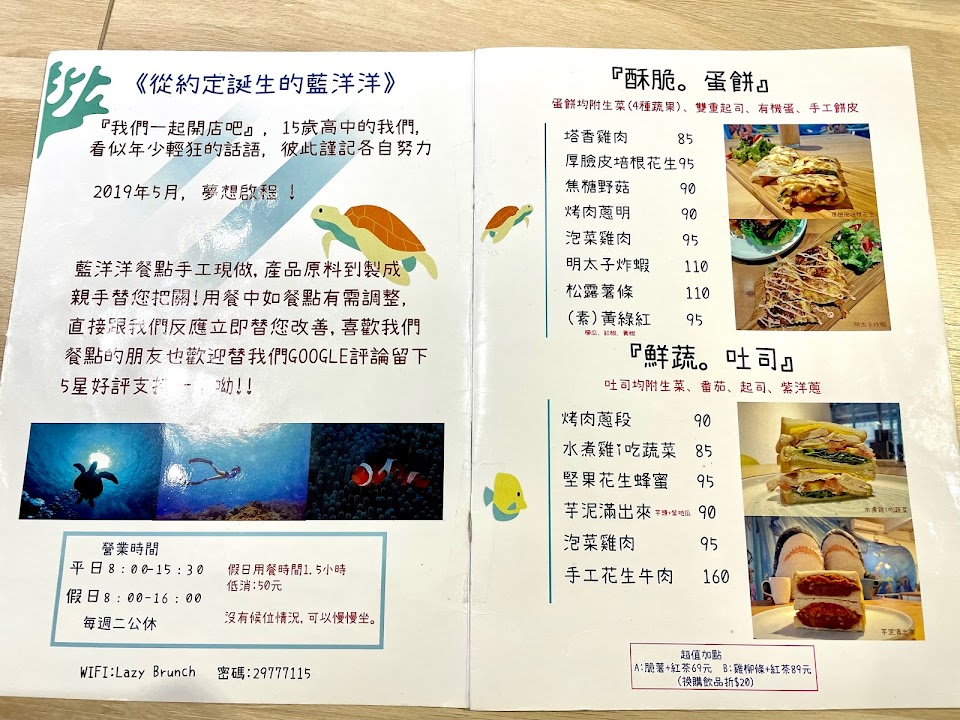 《從約定誕生的藍洋洋》
『我們一起開店吧』, 15歲高中的我們,
看似年少輕狂的話語, 彼此謹記各自努力
2019年5月, 夢想啟程 !
藍洋洋餐點手工現做,產品原料到製成
親手替您把關!用餐中如餐點有需調整,
直接跟我們反應立即替您改善,喜歡我們
餐點的朋友也歡迎替我們GOOGLE評論留下
5星好評支持 呦!!
營業時間
平日8:00-15:30
假日8:00-16:00
每週二公休
假日用餐時間1.5小時
低消:50元
沒有候位情況,可以慢慢坐。
WIFI:Lazy Brunch 密碼:29777115
『酥脆。蛋餅』
蛋餅均附生菜(4種蔬果)、雙重起司、有機蛋、手工餅皮
塔香雞肉 85
厚臉皮培根花生95
焦糖野菇 90
烤肉蔥明 90
泡菜雞肉 95
明太子炸蝦 110
松露薯條 110
(素)黃綠紅 95
厚臉皮培根花生
明太子炸蝦
『鮮蔬。吐司』
吐司均附生菜、番茄、起司、紫洋蔥
烤肉蔥段 90
水煮雞i吃蔬菜 85
堅果花生蜂蜜 95
芋泥滿出來 芋頭+紫地瓜 90
泡菜雞肉 95
手工花生牛肉 160
水煮雞i吃蔬菜
芋泥滿出來
超值加點
A:脆薯+紅茶69元 B:雞柳條+紅茶89元
(換購飲品折$20)